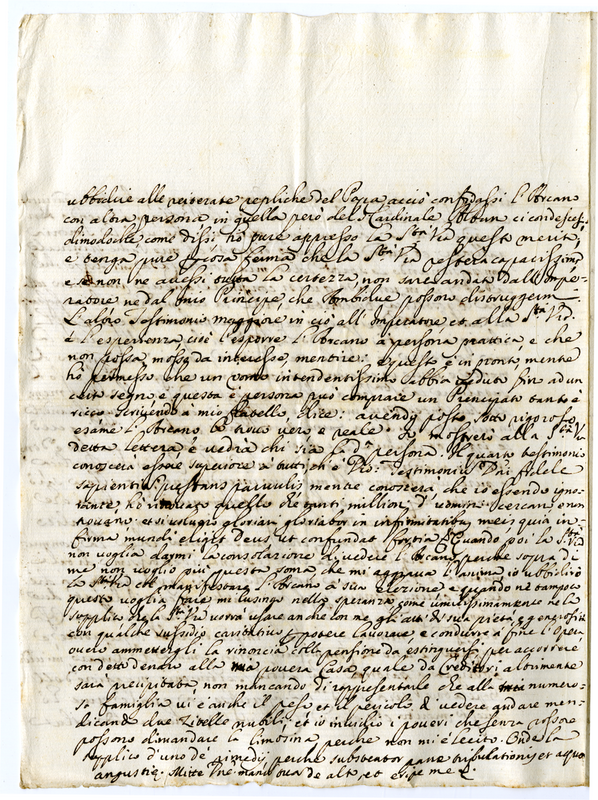 ubbidire alle reiterate repliche del Papa acciò confidassi l'Arcano
con altra persona in quella però del Cardinale Altan ci condescesi,
dimodoche come dissi hò pure appresso la Stà Vrà questo merito,
e tenga pure che la Stà Vrà resterà capacissima
e se non ne avessi tutta la certezza, non sarei andato dall'Impe-
ratore ne dal mio Principe che Ambidue possono distruggermi
L'altro Testimonio maggiore in ciò all'Imperatore et alla Stà Vrà
è l'esperienza, cioè l'esporre l'Arcano à persona prattica, e che
non possa, mossa da interesse, mentire: e questo è in pronto, mentre
hò permesso che un uomo intendentissimo l'abbia veduto fino ad un
certo segno e questa è persona può comprare un Principato tanto è
ricco. Scrivendo a mio fratello, dice: avendo posto sotto rigoroso
esame l'Arcano l'hò vero e reale. Si mostrerò alla Stà Vrà
detta lettera, e vedrà chi sia la dà persona. Il quarto testimonio
conoscerà essere superiore à tutti, ch'è Testimonium Dei fidele
sapientiam prestans parvulis mentre conoscerà, che io essendo igno-
rante, hò quello che tanti millioni d'uomini cercano e non
et si volugro gloriari, gloriabor in infirmitatibus meis quia in-
firma mundi eligit Deus ut confundat fortia. Quando poi la Stà Vrà
non voglia darmi la consolazione di vedere l'Arcano, perche sopra di
me non voglio più questa soma, che mi aggrava l'anima io ubbidirò
la Stà Vrà manifestare l'Arcano à sua elezione e quando ne tampoco
questo voglia fare mi lusingo nella speranza, come umilissimamente ne la
supplico che la Stà Vrà vorrà usare anche con me gli atti di sua pietà, e generosità
con qualche sussidio caritativo potere lavorare, e condurre à fine l'opera
overo ammettergli la rinoncia colla pensione da estinguersi per accorrere
con detto denaro alla mia povera Casa, quale da Creditori altrimente
sarà precipitata, non mancando di rappresentarle che alla mia numero-
sa famiglia vi è anche il peso et il pericolo di vedere andare men-
dicando due Zitelle nubili, et io invidio i poveri che senza rossore
possono dimandare la limosina perche non mi è lecito. Onde la
supplico d'uno de' rimedij perche substentor pane tribulationis et aqua
angustie. Mitte Dne manu tua de alto et eripe me &.